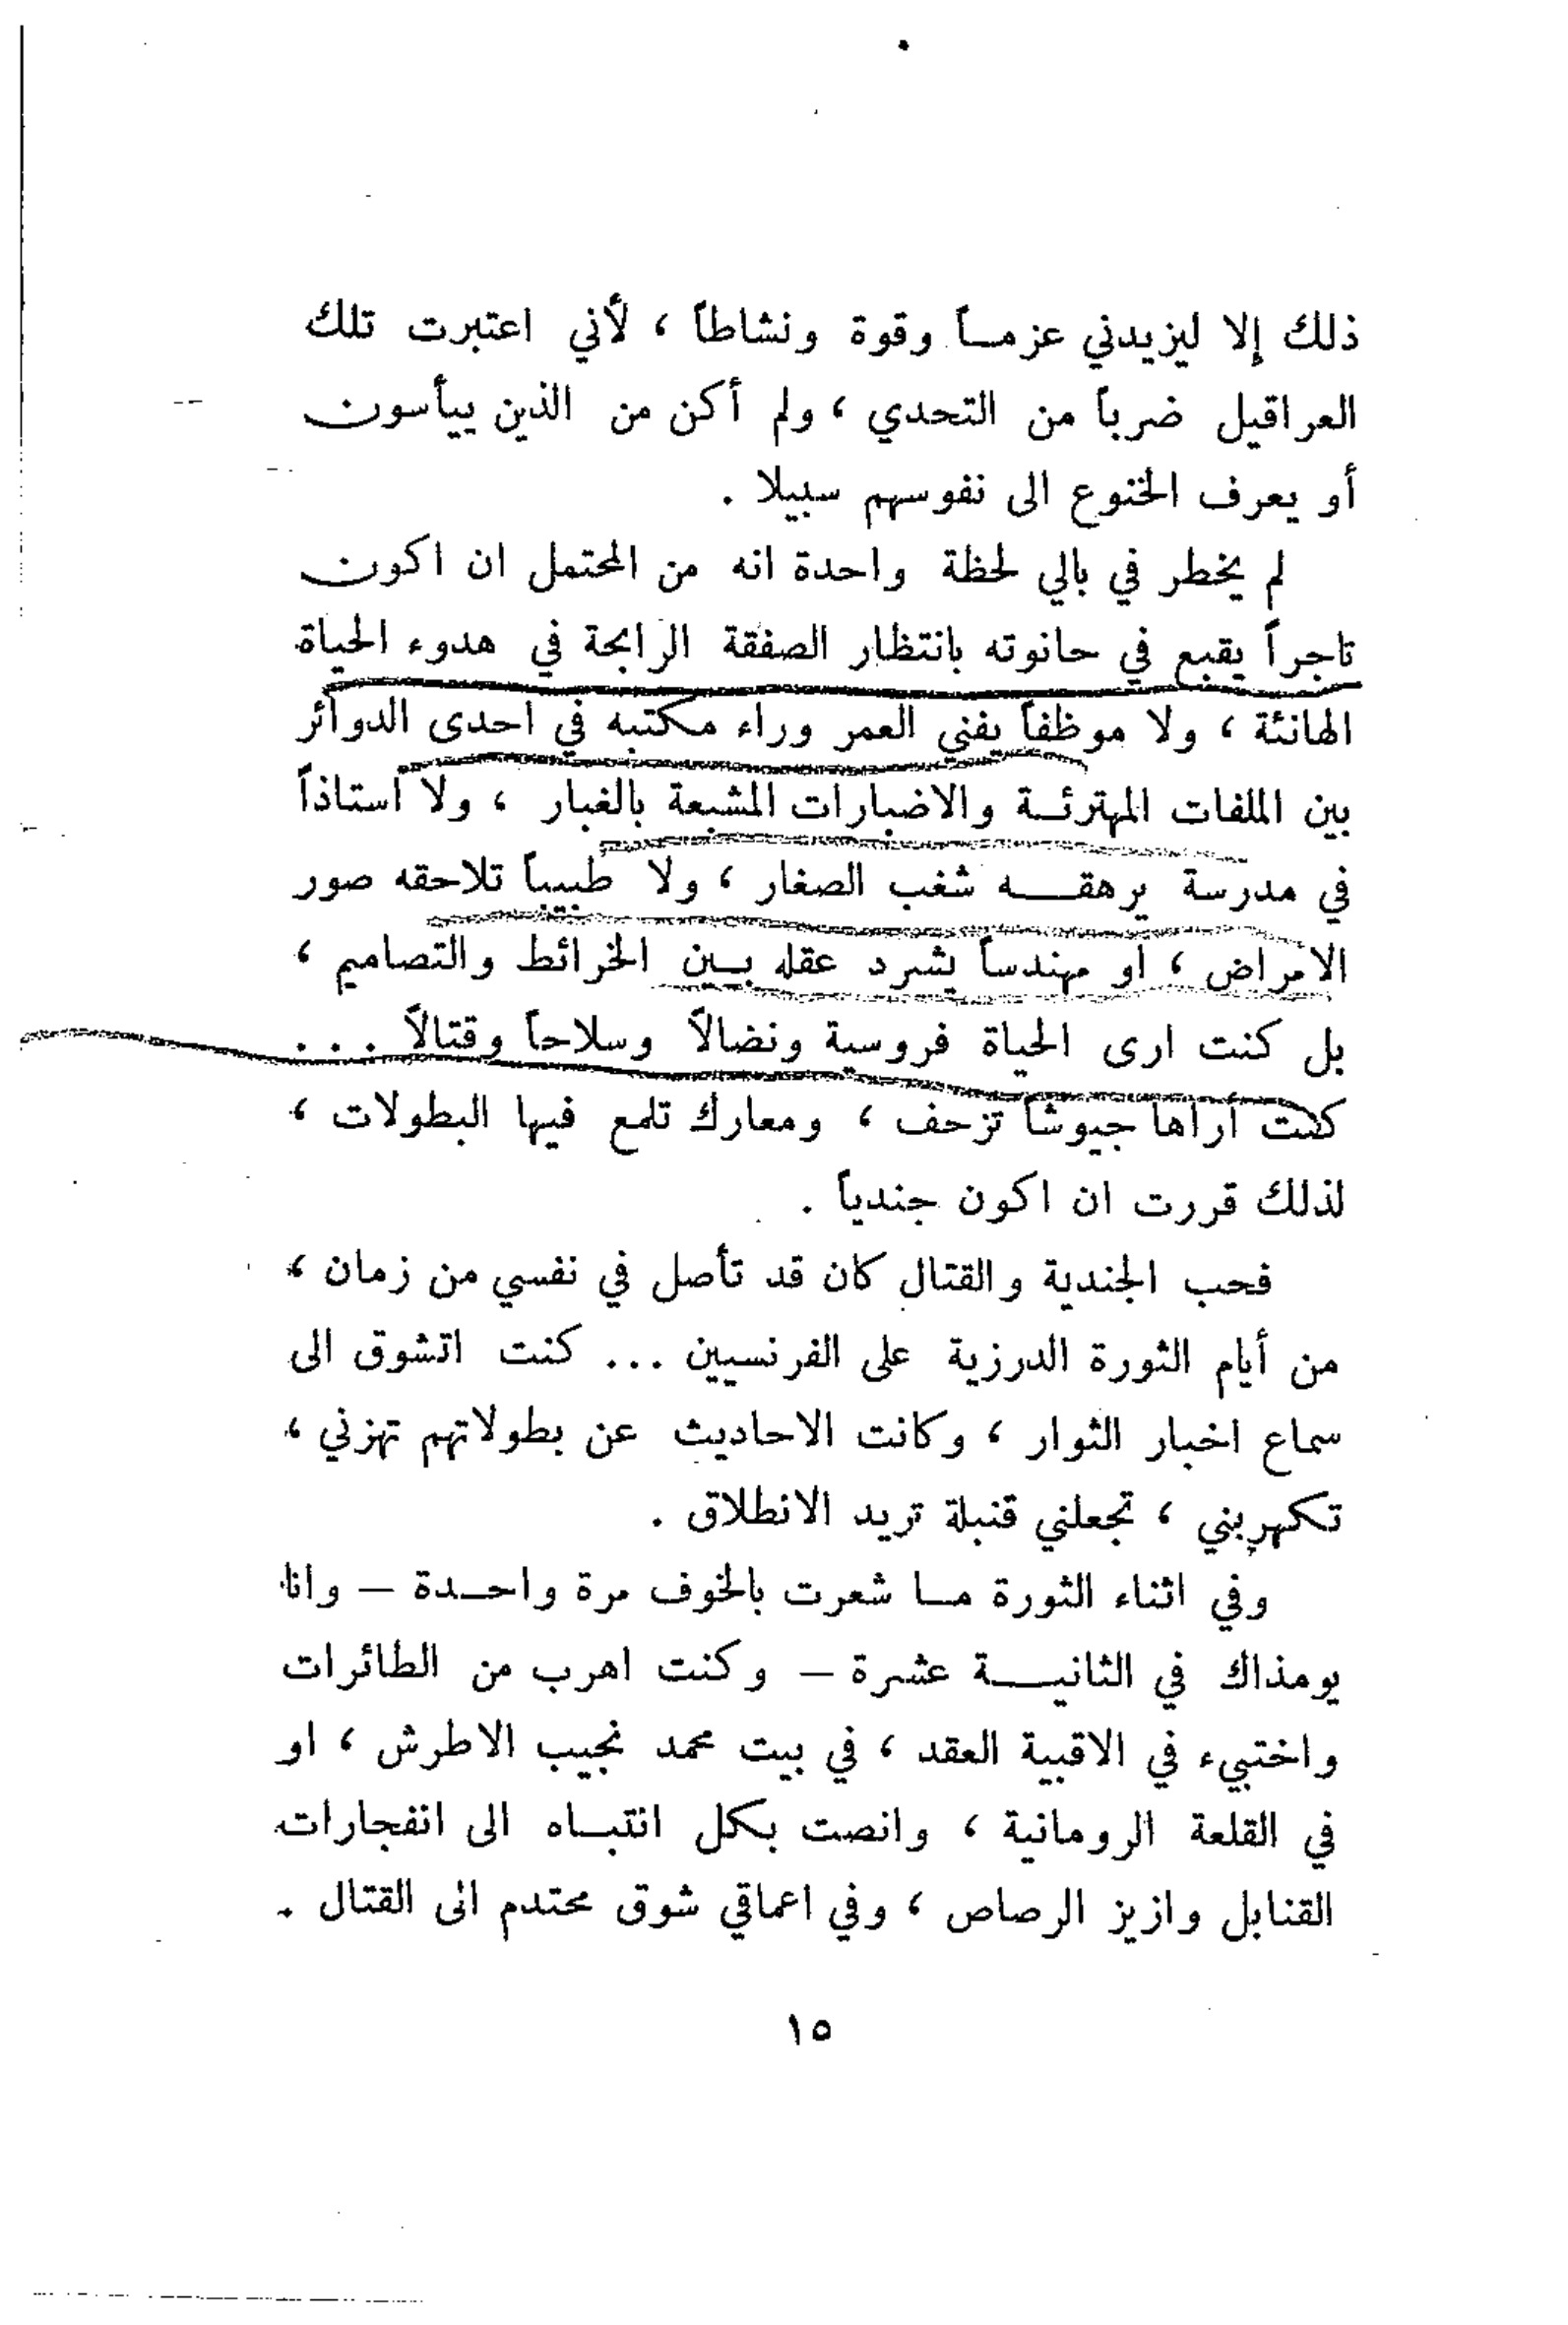 ذلك إلا ليزيدني عزماً وقوة ونشاطاً ، لأني اعتبرت تلك
العراقيل ضرباً من التحدي ، ولم أكن من الذين ييأسون
أو يعرف الخنوع الى نفوسهم سبيلا .
لم يخطر في بالي لحظة واحدة انه من المحتمل ان اكون
تاجراً يقبع في حانوته بانتظار الصفقة الرابحة في هدوء الحياة
الهانئة ، ولا موظفاً يفني العمر وراء مكتبه في احدى الدوائر
بين الملفات المهترئة والاضبارات المشبعة بالغبار ، ولا استاذاً
في مدرسة يرهقه شغب الصغار ، ولا طبيباً تلاحقه صور
الامراض ، او مهندساً يشرد عقله بين الخرائط والتصاميم ،
بل كنت ارى الحياة فروسية ونضالاً وسلاحاً وقتالاً ...
كنت أراها جيوشاً تزحف ، ومعارك تلمع فيها البطولات ،
لذلك قررت ان اكون جندياً .
فحب الجندية والقتال كان قد تأصل في نفسي من زمان ،
من أيام الثورة الدرزية على الفرنسيين ... كنت اتشوق الى
سماع اخبار الثوار ، وكانت الاحاديث عن بطولاتهم تهزني ،
تكهربني ، تجعلني قنبلة تريد الانطلاق .
وفي اثناء الثورة ما شعرت بالخوف مرة واحدة – وانا
يومذاك في الثانية عشرة – وكنت اهرب من الطائرات
واختبيء في الاقبية العقد ، في بيت محمد نجيب الاطرش ، او
في القلعة الرومانية ، وانصت بكل انتباه الى انفجارات
القنابل وازيز الرصاص ، وفي اعماقي شوق محتدم الى القتال .
١٥